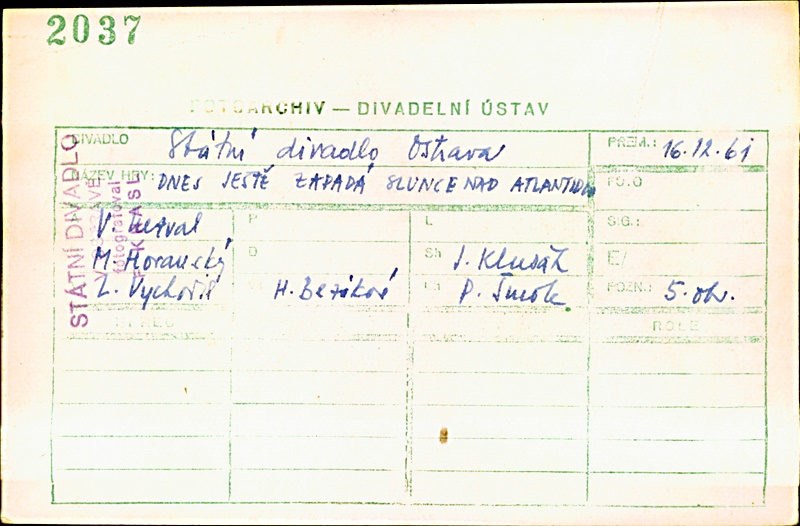 2037
FOTOARCHIV — DIVADELNÍ ÚSTAV
DIVADLO Státní divadlo Ostrava PREM.: 16.12.61
NÁZEV HRY: DNES JEŠTĚ ZAPADÁ SLUNCE NAD ATLANTIDOU FOTO
V. Nezval P L SIG.:
M. Horanský D Sh J. Klusák E/
L. Vychodil H. Bezáková P. Šmok POZN.: 5. obr.
ROLE
STÁTNÍ DIVADLO
V OSTRAVĚ
fotografoval